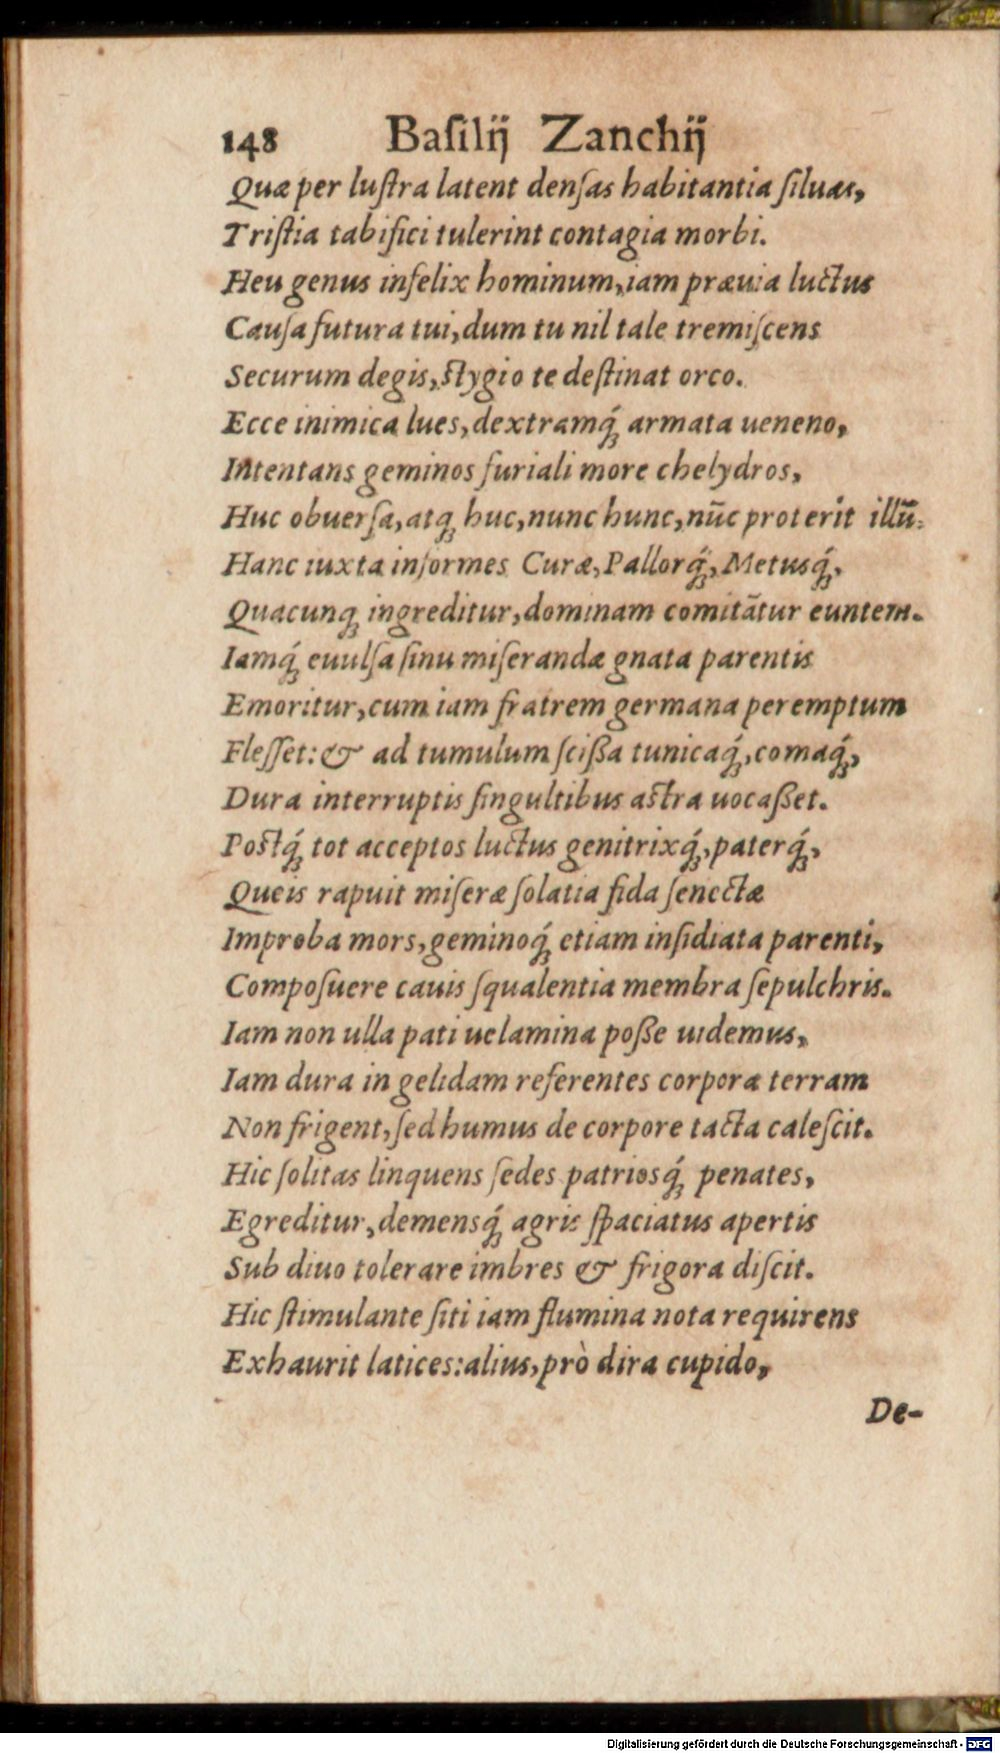 148 Baſilij Zanchij
Quæ per luſtra latent denſas habitantia ſiluas,
Triſtia tabifici tulerint contagia morbi.
Heu genus infelix hominum, iam præuia luctus
Cauſa futura tui, dum tu nil tale tremiſcens
Securum degis, ſtygio te deſtinat orco.
Ecce inimica lues, dextramq́; armata ueneno,
Intentans geminos furiali more chelydros,
Huc obuerſa, atq; huc, nunc hunc, nūc proterit illū:
Hanc iuxta informes Curæ, Pallorq́;, Metusq́;,
Quacunq; ingreditur, dominam comitātur euntem.
Iamq́; euulſa ſinu miſerandæ gnata parentis
Emoritur, cum iam fratrem germana peremptum
Fleſſet: & ad tumulum ſcißa tunicaq́;, comaq́;,
Dura interruptis ſingultibus aſtra uocaßet.
Poſtq́; tot acceptos luctus genitrixq́;, paterq́;,
Queis rapuit miſeræ ſolatia fida ſenectæ
Improba mors, geminoq́; etiam inſidiata parenti,
Compoſuere cauis ſqualentia membra ſepulchris.
Iam non ulla pati uelamina poße uidemus,
Iam dura in gelidam referentes corpora terram
Non frigent, ſed humus de corpore tacta caleſcit.
Hic ſolitas linquens ſedes patriosq́; penates,
Egreditur, demensq́; agris ſpaciatus apertis
Sub diuo tolerare imbres & frigora diſcit.
Hic ſtimulante ſiti iam flumina nota requirens
Exhaurit latices: alius, prò dira cupido,
De-
Digitalisierung gefördert durch die Deutsche Forschungsgemeinschaft - DFG